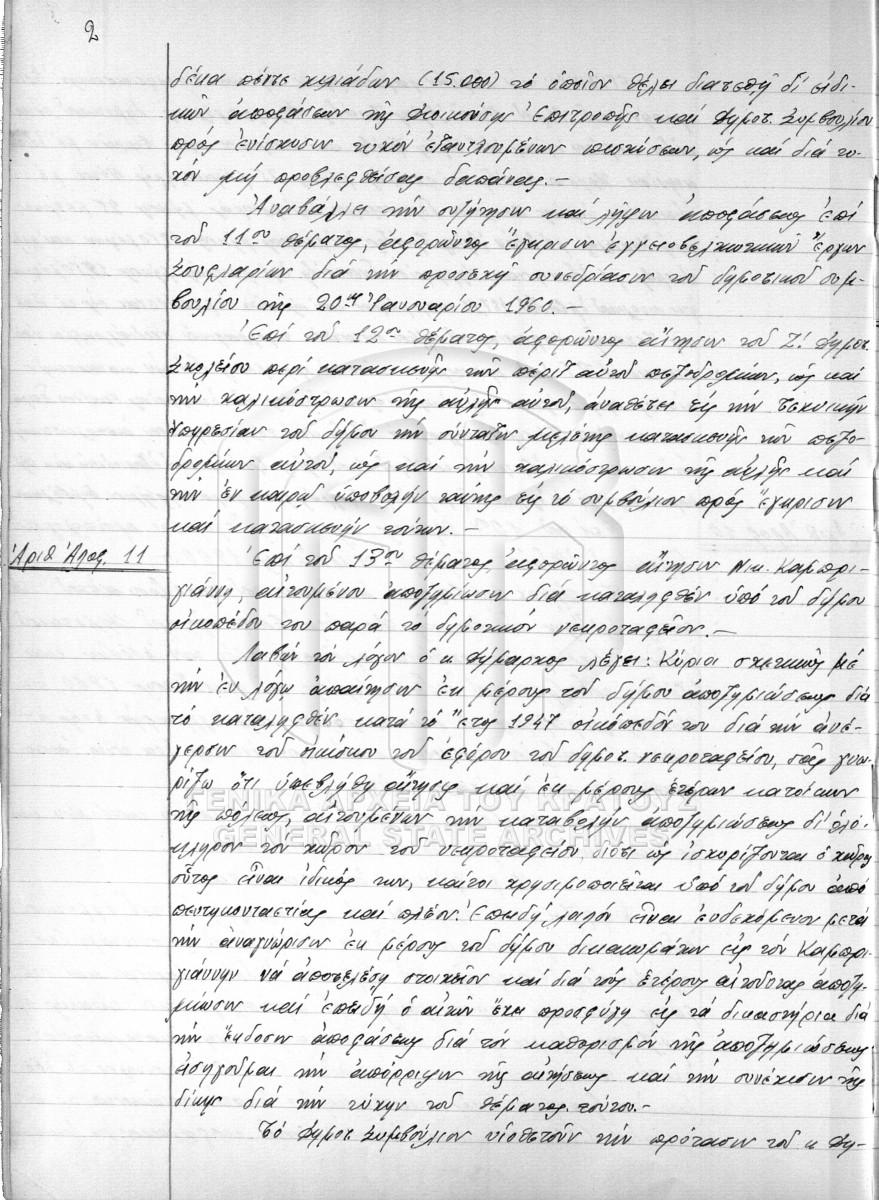 2
δέκα πέντε χιλιάδων (15.000) τό ὁποῖον θέλει διατεθῆ δι' εἰδι-
κῶν ἀποφάσεων τῆς Διοικούσης Ἐπιτροπῆς καί Δημοτ. Συμβουλίου
πρός ἐνίσχυσιν τυχόν ἐξαντλουμένων πιστώσεων, ὡς καί διά τυ-
χόν μή προβλεφθείσας δαπάνας.-
Ἀναβάλλει τήν συζήτησιν καί λήψιν ἀποφάσεως ἐπί
τοῦ 11ου θέματος, ἀφορῶντος ἔγκρισιν ἐγγειοβελτιωτικῶν ἔργων
Σουφλαρίων διά τήν προσεχῆ συνεδρίασιν τοῦ δημοτικοῦ συμ-
βουλίου τῆς 20ης Ἰανουαρίου 1960.-
Ἐπί τοῦ 12ου θέματος, ἀφορῶντος αἴτησιν τοῦ Ζ! Δημοτ.
Σχολείου περί κατασκευῆς τῶν πέριξ αὐτοῦ πεζοδρομίων, ὡς καί
τήν χαλικόστρωσιν τῆς αὐλῆς αὐτοῦ, ἀναθέτει εἰς τήν Τεχνικήν
Ὑπηρεσίαν τοῦ δήμου τήν σύνταξιν μελέτης κατασκευῆς τῶν πεζο-
δρομίων αὐτοῦ, ὡς καί τήν χαλικόστρωσιν τῆς αὐλῆς καί
τήν ἐν καιρῷ ὑποβολήν ταύτης εἰς τό συμβούλιον πρός ἔγκρισιν
καί κατασκευήν τούτων.-
Ἀριθ. Ἀποφ. 11
Ἐπί τοῦ 13ου θέματος, ἀφορῶντος αἴτησιν Νικ. Καμπρι-
γιάννη, αἰτουμένου ἀποζημίωσιν διά καταληφθέν ὑπό τοῦ δήμου
οἰκοπέδου του παρά τό δημοτικόν νεκροταφεῖον.-
Λαβών τόν λόγον ὁ κ. Δήμαρχος λέγει: Κύριοι σχετικῶς μέ
τήν ἐν λόγῳ ἀπαίτησιν ἐκ μέρους τοῦ δήμου ἀποζημιώσεως διά
τό καταληφθέν κατά τό ἔτος 1947 οἰκόπεδόν του διά τήν ἀνέ-
γερσιν τοῦ οἰκίσκου τοῦ ἐφόρου τοῦ δημοτ. νεκροταφείου, σᾶς γνω-
ρίζω ὅτι ὑπεβλήθη αἴτησις καί ἐκ μέρους ἑτέρων κατοίκων
τῆς πόλεως, αἰτουμένων τήν καταβολήν ἀποζημιώσεως δι' ὁλό-
κληρον τόν χῶρον τοῦ νεκροταφείου, διότι ὡς ἰσχυρίζονται ὁ χῶρος
οὗτος εἶναι ἰδικός των, καίτοι χρησιμοποιεῖται ὑπό τοῦ δήμου ἀπό
πεντηκονταετίας καί πλέον. Ἐπειδή λοιπόν εἶναι ἐνδεχόμενον μετά
τήν ἀναγνώρισιν ἐκ μέρους τοῦ δήμου δικαιωμάτων εἰς τόν Καμπρι-
γιάννην νά ἀποτελέσῃ στοιχεῖον καί διά τούς ἑτέρους αἰτοῦντας ἀποζη-
μίωσιν καί ἐπειδή ὁ αἰτῶν ἔχει προσφύγῃ εἰς τά δικαστήρια διά
τήν ἔκδοσιν ἀποφάσεως διά τόν καθορισμόν τῆς ἀποζημιώσεως,
εἰσηγοῦμαι τήν ἀπόρριψιν τῆς αἰτήσεως καί τήν συνέχισιν τῆς
δίκης διά τήν τύχην τοῦ θέματος τούτου.-
Τό Δημοτ. Συμβούλιον υἱοθετοῦν τήν πρότασιν τοῦ κ. Δη-
ΓΕΝΙΚΑ ΑΡΧΕΙΑ ΤΟΥ ΚΡΑΤΟΥΣ
GENERAL STATE ARCHIVES